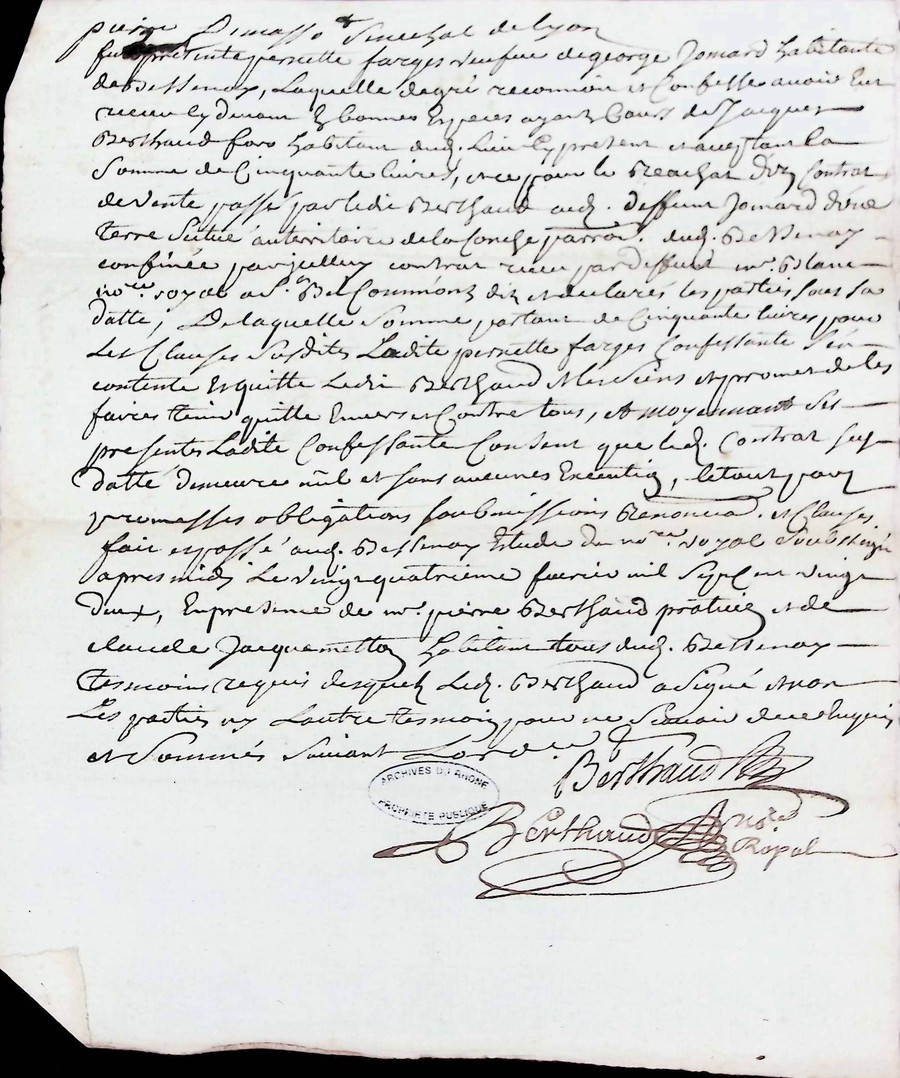 pierre Dumas so.t Senechal de lyon
fut presente pernette farges veufue de george Jomard habitante
de Bessenay, Laquelle de gré reconnoit et Confesse avoir Eut
receu cy devant En bonnes Especes ayant Cours de Jacques
Berthaud fors habitant dud. Lieu Cy present et aceptant la
Somme de Cinquante livres, et ce pour le Reachat d'un Contrat
de vente passé par ledit Berthaud aud. deffunt Jomard d'une
terre Sittué au territoire de la Conche parrois. dud. Bessenay
confinée par jcelluy contrat receu par deffunt me. Blanc
no.re royal a St. Bel Comme ont dit et declaré les parties sous sa
datte; De laquelle Somme partant de Cinquante livres pour
Les Clauses Susdites Ladite pernette farges Confessante S'en
contente Et quitte Ledit Berthaud et les Siens et promet de les
faires tenir quitte Envers et Contre tous, et moyennant ses
presentes Ladite Confessante Consent que led. Contrat sus
datté demeure nul et sans aucunes Execution, le tout par
promesses obligations soubmissions Renonciad. et Clauses
fait et passé aud. Bessenay Etude du no.re royal Soubsigné
apres midi Le vingt quatrieme fevrier mil Sept cent vingt
deux, En presence de me. pierre Berthaud praticien et de
claude Jacquemetton habitant tous dud. Bessenay
tesmoins requis desquels Led. Berthaud a Signé et non
Les parties ny Lautre tesmoin pour ne Scavoir de ce Enquis
et Sommés Suivant Lord.ce
Berthaud
Berthaud No.re
Royal
ARCHIVES DU RHONE
PROPRIETE PUBLIQUE